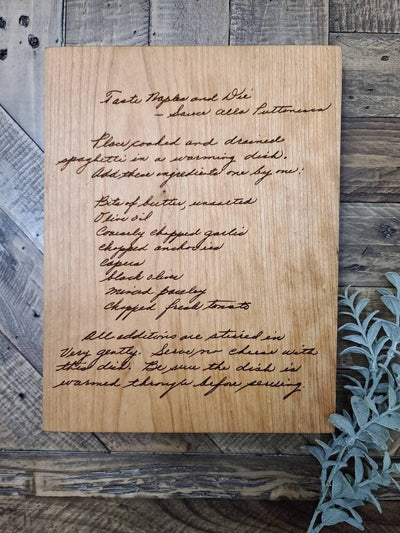 Taste Naples and Die
- Sauce alla Puttanesca
Place cooked and drained
spaghetti in a warming dish.
Add these ingredients one by one:
Bits of butter, unsalted
Olive oil
Coarsely chopped garlic
chopped anchovies
capers
black olives
minced parsley
chopped fresh tomato
All additions are stirred in
very gently. Serve no cheese with
this dish. Be sure the dish is
warmed through before serving.